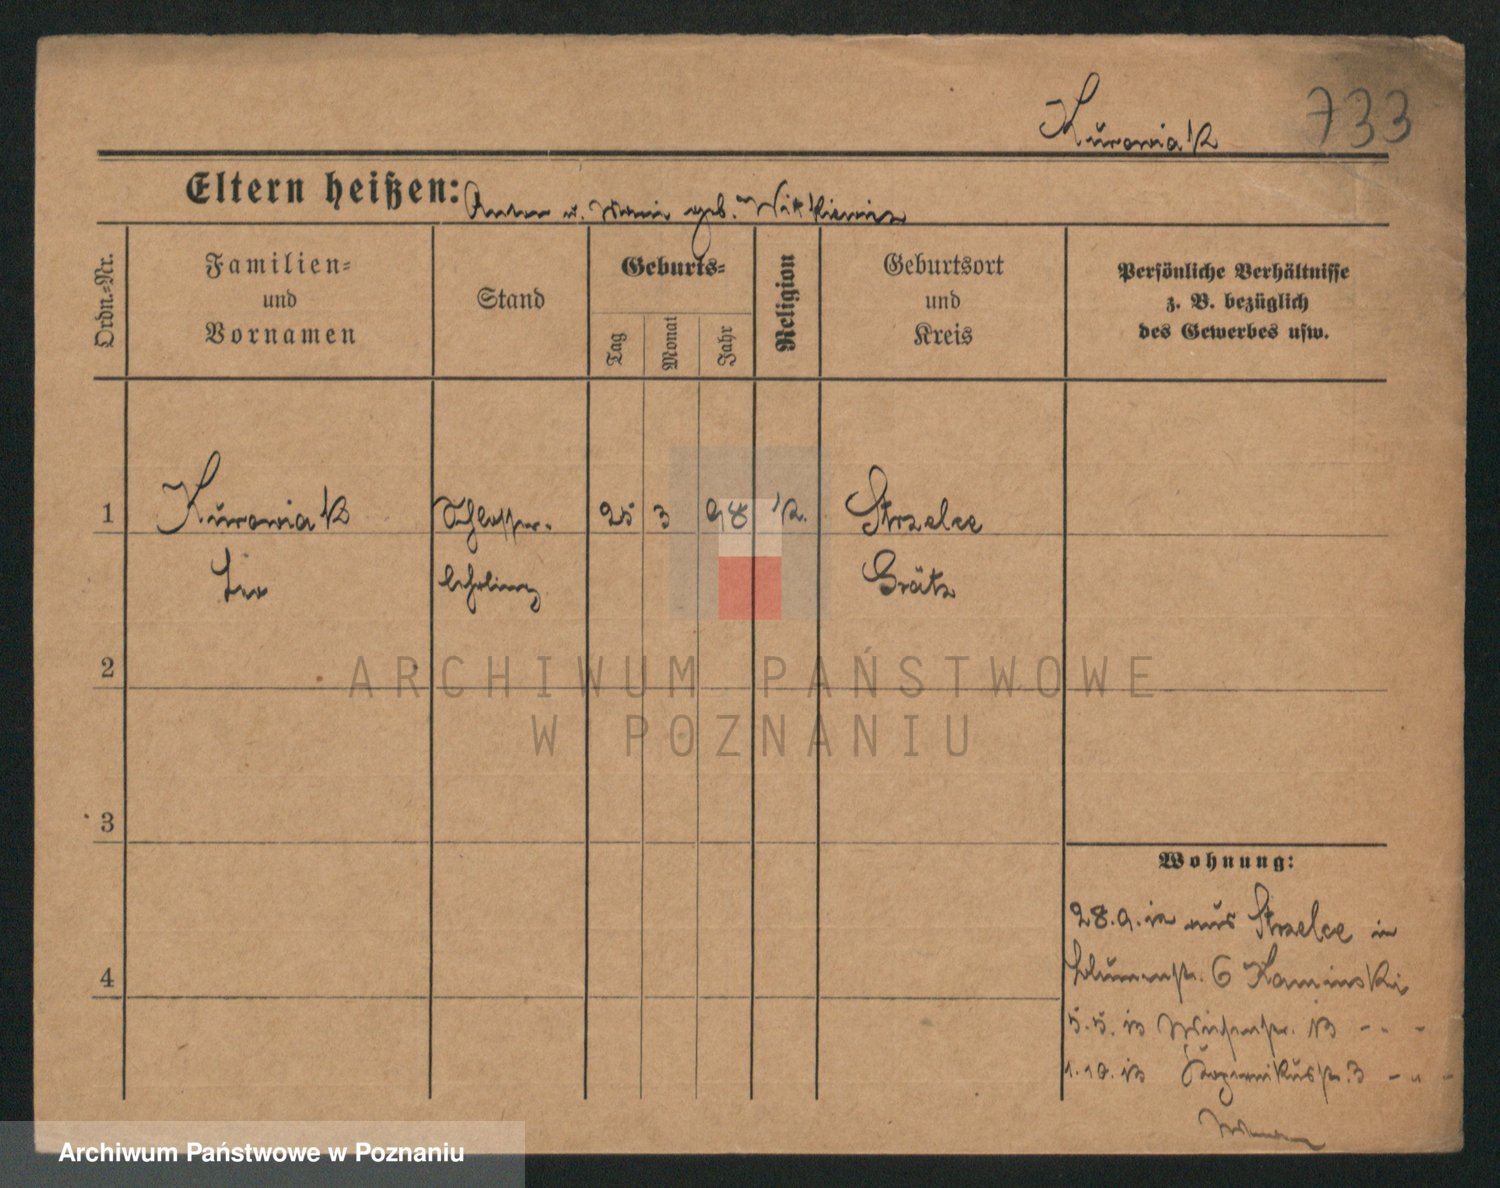 Kurowiak 733
Eltern heißen: Anton u. Maria geb. Witkiewicz
Ordn.-Nr.
Familien-
und
Vornamen
Stand
Geburts-
Tag
Monat
Jahr
Religion
Geburtsort
und
Kreis
Persönliche Verhältnisse
z. B. bezüglich
des Gewerbes usw.
1 Kurowiak Schlosser- 25 3 98 k. Strzelce
Leo lehrling Grätz
2
3
4
Wohnung:
28.9. aus Strzelce in
Blumenstr. 6 Kaminski
5.5. 13 Wiesenstr. 13 - " -
1.10. 13 Kopernikusstr. 3 - " -
ARCHIWUM PAŃSTWOWE
W POZNANIU
Archiwum Państwowe w Poznaniu